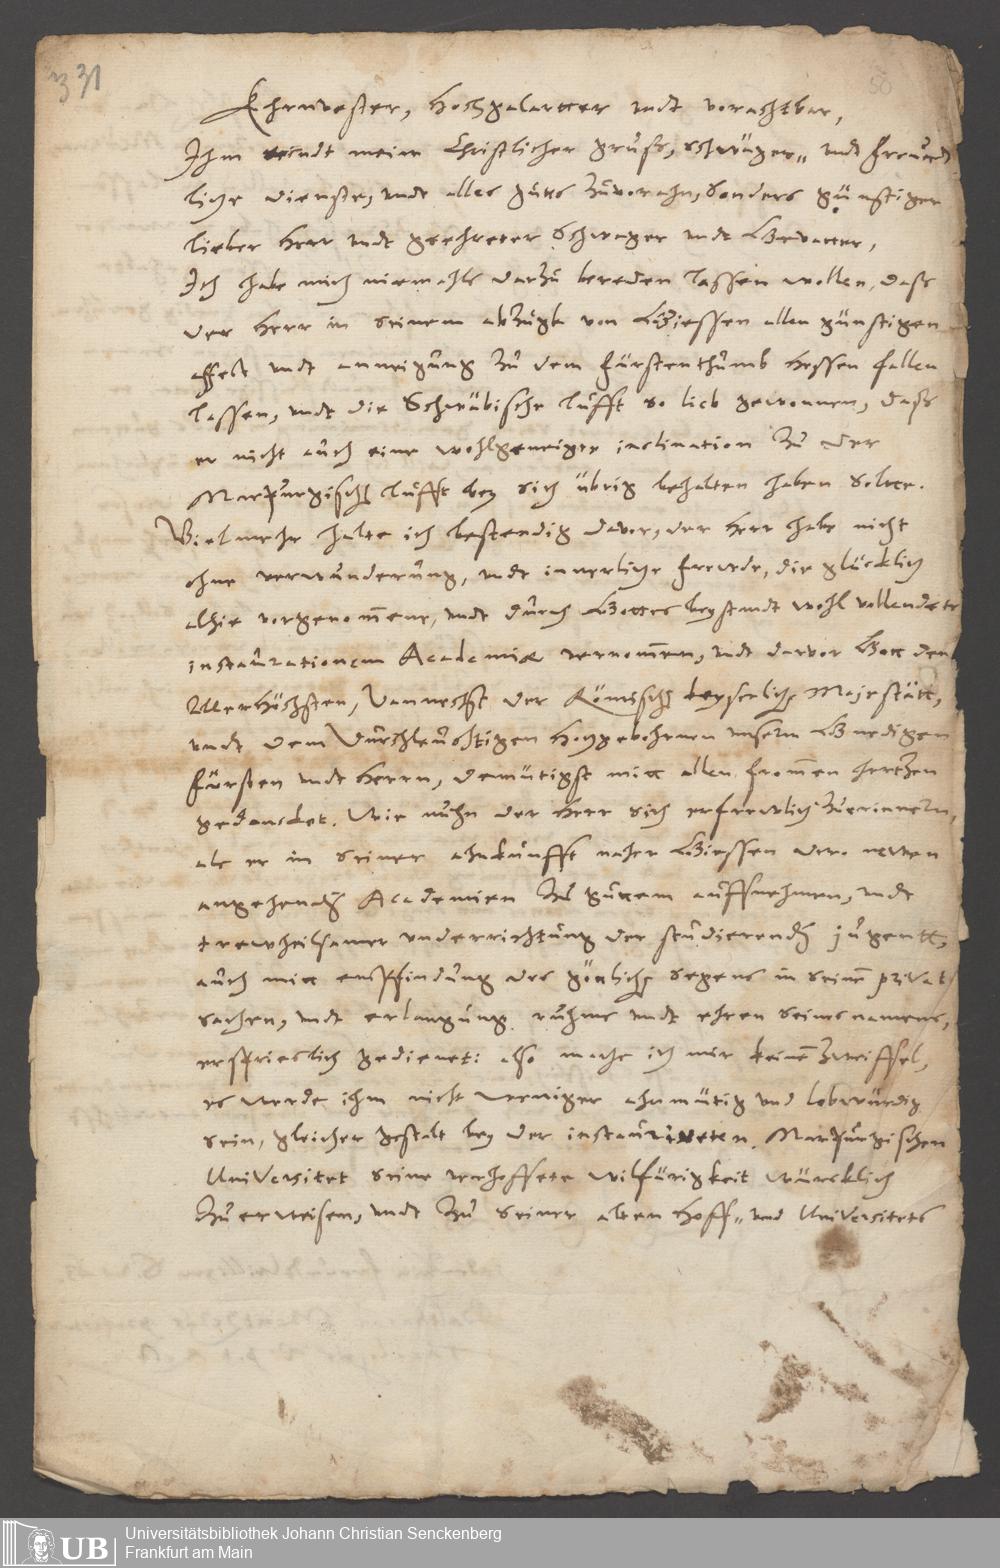 331
50
Ehrnvester, Hochgelartter undt vorachtbar,
Ihm seindt mein Christlicher gruß, schwäger„ undt freundt
liche dienste, undt alles guts zuvorahn, Sonders günstiger
lieber Herr undt geehreter Schwager undt Gevatter,
Ich habe mich niemahls darzu bereden lassen wollen, daß
der Herr in seinem abzugk von Giessen allen günstigen
affect undt anneigung zu dem Fürstenthumb Hessen fallen
lassen, undt die Schwäbische lufft so lieb gewonnen, daß
er nicht auch eine wohlgeneigte inclination zu der
Marpurgischen lufft bey sich übrig behalten haben solte.
Vielmehr halte ich bestendig davor, der Herr habe nicht
ohne verwunderung, undt innerliche frewde, die glücklich
alhie vorgenommene, undt durch Gottes beystandt wohl vollendete
instaurationem Academiæ vernommen, undt darvor Gott dem
Allerhöchsten, Vannechst der Römischen keyserlichen Majestätt,
undt dem Durchleuchtigen Hochgebohrnen unserm Gnedigen
Fürsten undt Herrn, demütigst mitt allen frommen hertzen
gedancket. Wie nuhn der Herr sich erfrewlich zuerinnern,
als er in seiner ahnkunfft naher Giessen dero newen
angehenden Academien zu guttem auffnehmen, undt
trewheilsamer underrichtung der studierenden jugentt,
auch mitt empfindung des göttlichen segens in seinen privat
sachen, undt erlangung ruhms undt ehren seines namens,
ersprieslich gedienet: also mache ich mir keinen zweiffel,
es werde ihm nicht weniger ahnmütig und lobwürdig
sein, gleicher gestalt bey der instaurireten Marpurgischen
Universitet seine verhoffete wilfürigkeit würcklich
zu erweisen, undt zu seiner alten Hoff„ und Universitets
UB
Universitätsbibliothek Johann Christian Senckenberg
Frankfurt am Main